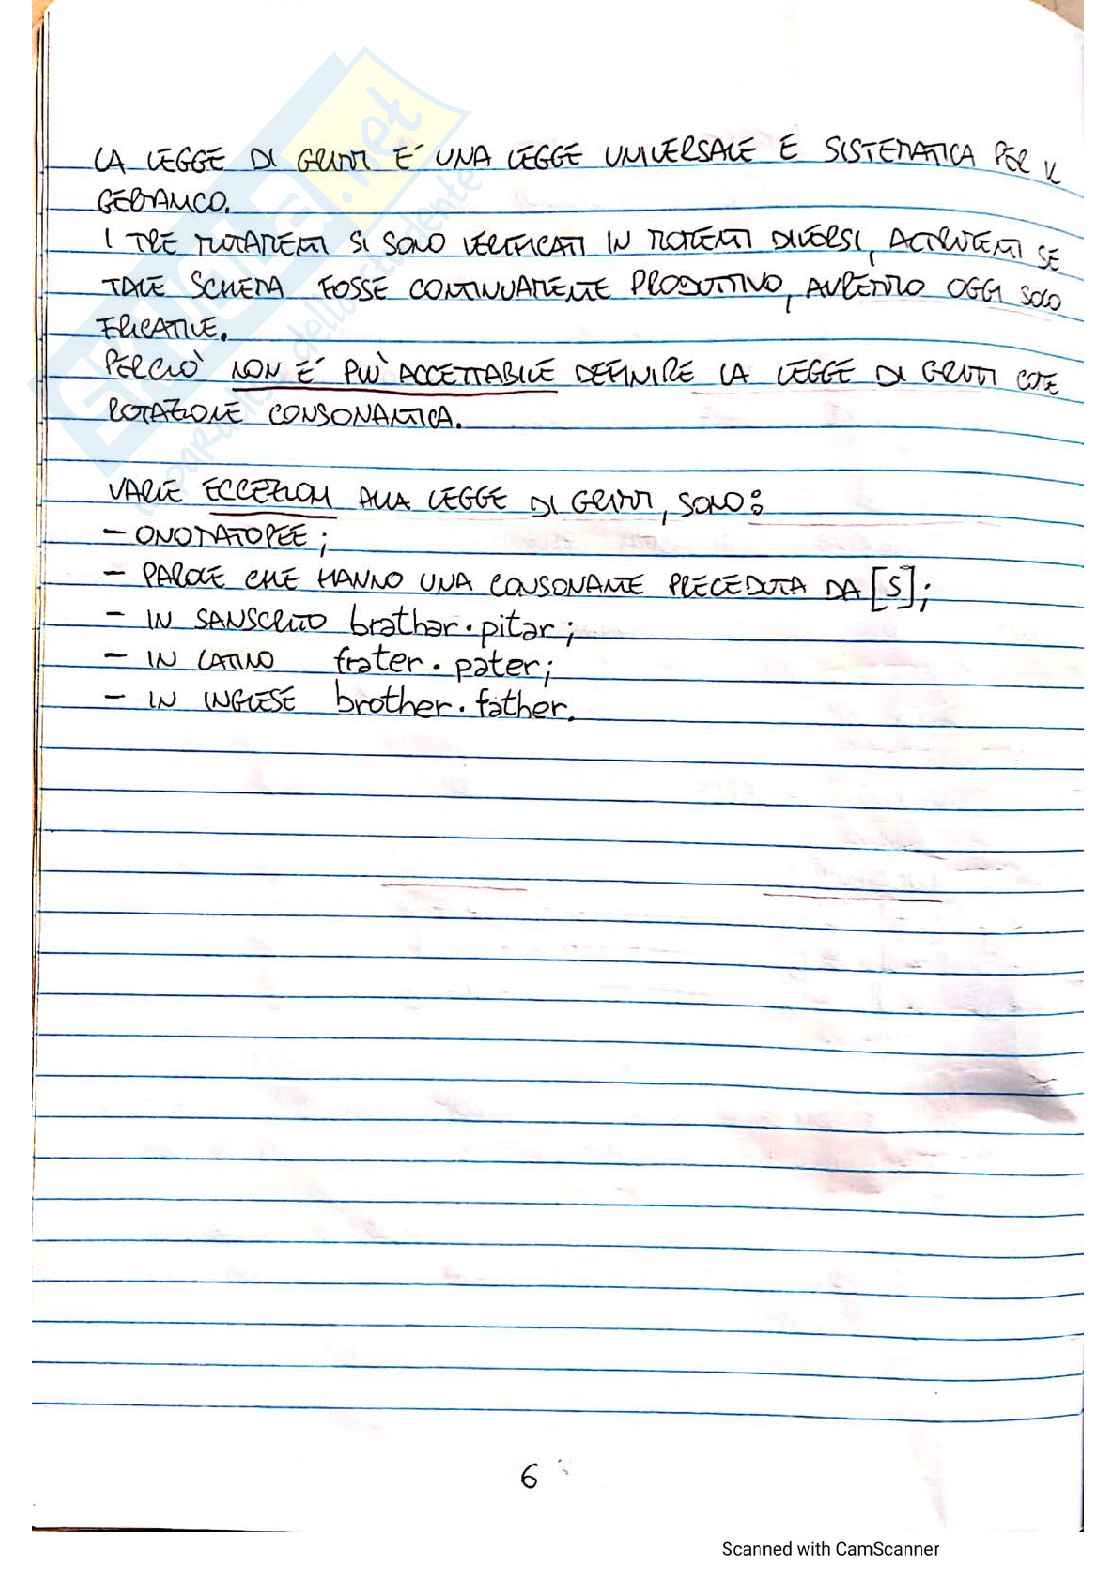 LA LEGGE DI GRIMM E' UNA LEGGE UNIVERSALE E SISTEMATICA PER IL
GERMANICO.
I TRE MUTAMENTI SI SONO VERIFICATI IN MOMENTI DIVERSI, ALTRIMENTI SE
TALE SCHEMA FOSSE CONTINUAMENTE PRODUTTIVO, AVREMMO OGGI SOLO
FRICATIVE.
PERCIÒ NON E' PIÙ ACCETTABILE DEFINIRE LA LEGGE DI GRIMM COME
ROTAZIONE CONSONANTICA.
VARIE ECCEZIONI ALLA LEGGE DI GRIMM, SONO:
- ONOMATOPEE;
- PAROLE CHE HANNO UNA CONSONANTE PRECEDUTA DA [S];
- IN SANSCRITO brathar · pitar;
- IN LATINO frater · pater;
- IN INGLESE brother · father.
6
Scanned with CamScanner